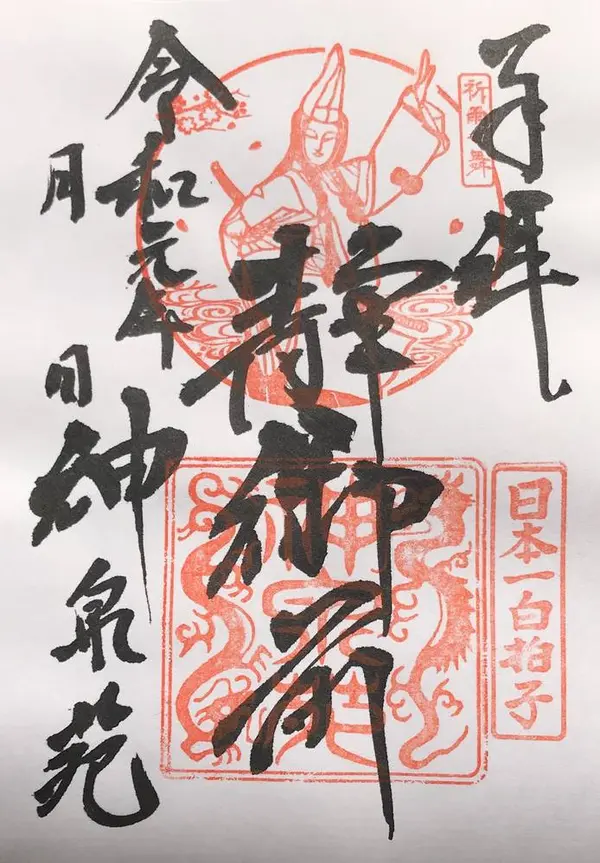 奉拝
祈雨舞
日本一白拍子
静御前
神泉苑
令和元年
月 日
神泉苑